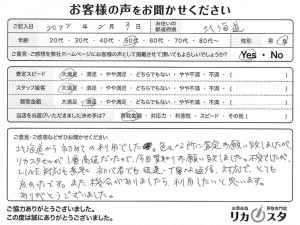 お客様の声をお聞かせください
ご記入日 2022年 2月 3日 お住いの都道府県 北海道
年齢 20代・30代・40代・50代・60代・70代・80代〜 性別 男・女
ご意見・ご感想を弊社ホームページにお客様の声として掲載させて頂いてもよろしいでしょうか? Yes・No
査定スピード 大満足・満足・やや満足・どちらでもない・やや不満・不満・( )
スタッフ接客 大満足・満足・やや満足・どちらでもない・やや不満・不満・( )
買取金額 大満足・満足・やや満足・どちらでもない・やや不満・不満・( )
当店をお選びいただきました決め手は? 買取金額・対応力・利便性・スピード・その他( )
ご意見・ご感想などぜひお聞かせください
北海道から初めての利用でした。色んな所に査定の願い致しましたが、
リカスタさんが1番高価だったので、今回買取りお願い致しました。不安でしたが、
LINE対応も素早く、初心者でも迅速・丁寧な連絡、対応で、とても
良かったです。また機会がありましたら利用したいと思います。
ありがとうございました。
ご協力ありがとうございました。
この度は誠にありがとうございました。
お酒品価 買取専門店
リカスタ